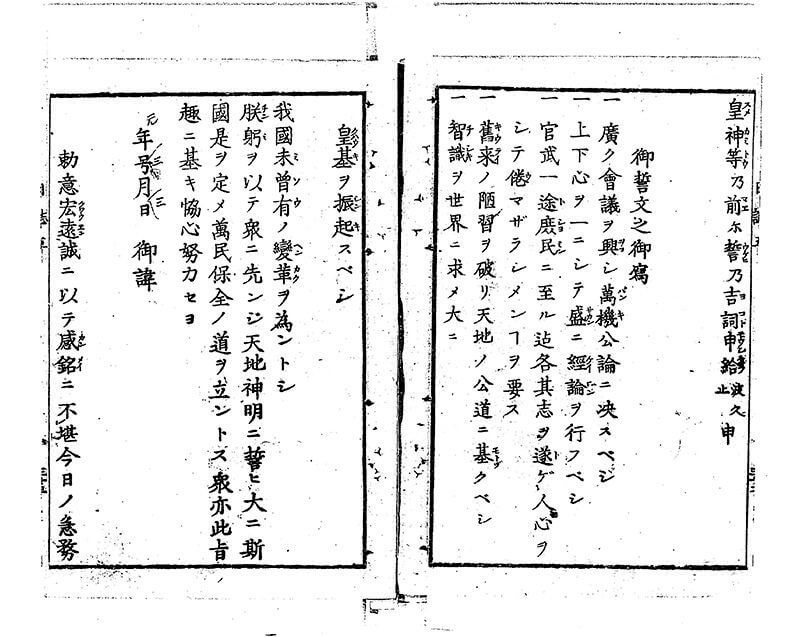 皇神等乃前尓誓乃吉詞申給波久止申
御誓文之御寫
一 廣ク會議ヲ興シ萬機公論ニ决スベシ
一 上下心ヲ一ニシテ盛ニ經論ヲ行フベシ
一 官武一途庶民ニ至ル迠各其志ヲ遂ゲ人心ヲ
シテ倦マザラシメンヿヲ要ス
一 舊来ノ陋習ヲ破リ天地ノ公道ニ基クベシ
一 智識ヲ世界ニ求メ大ニ
皇基ヲ振起スベシ
我國未曽有ノ變革ヲ為ントシ
朕躬ヲ以テ衆ニ先ンジ天地神明ニ誓ヒ大ニ斯
國是ヲ定メ萬民保全ノ道ヲ立ントス衆亦此旨
趣ニ基キ恊心努力セヨ
年号月日 御諱
勅意宏遠誠ニ以テ感銘ニ不堪今日ノ急務